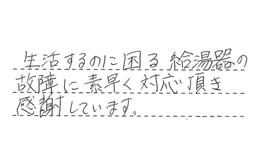 生活するのに困る給湯器の
故障に素早く対応頂き
感謝しています。